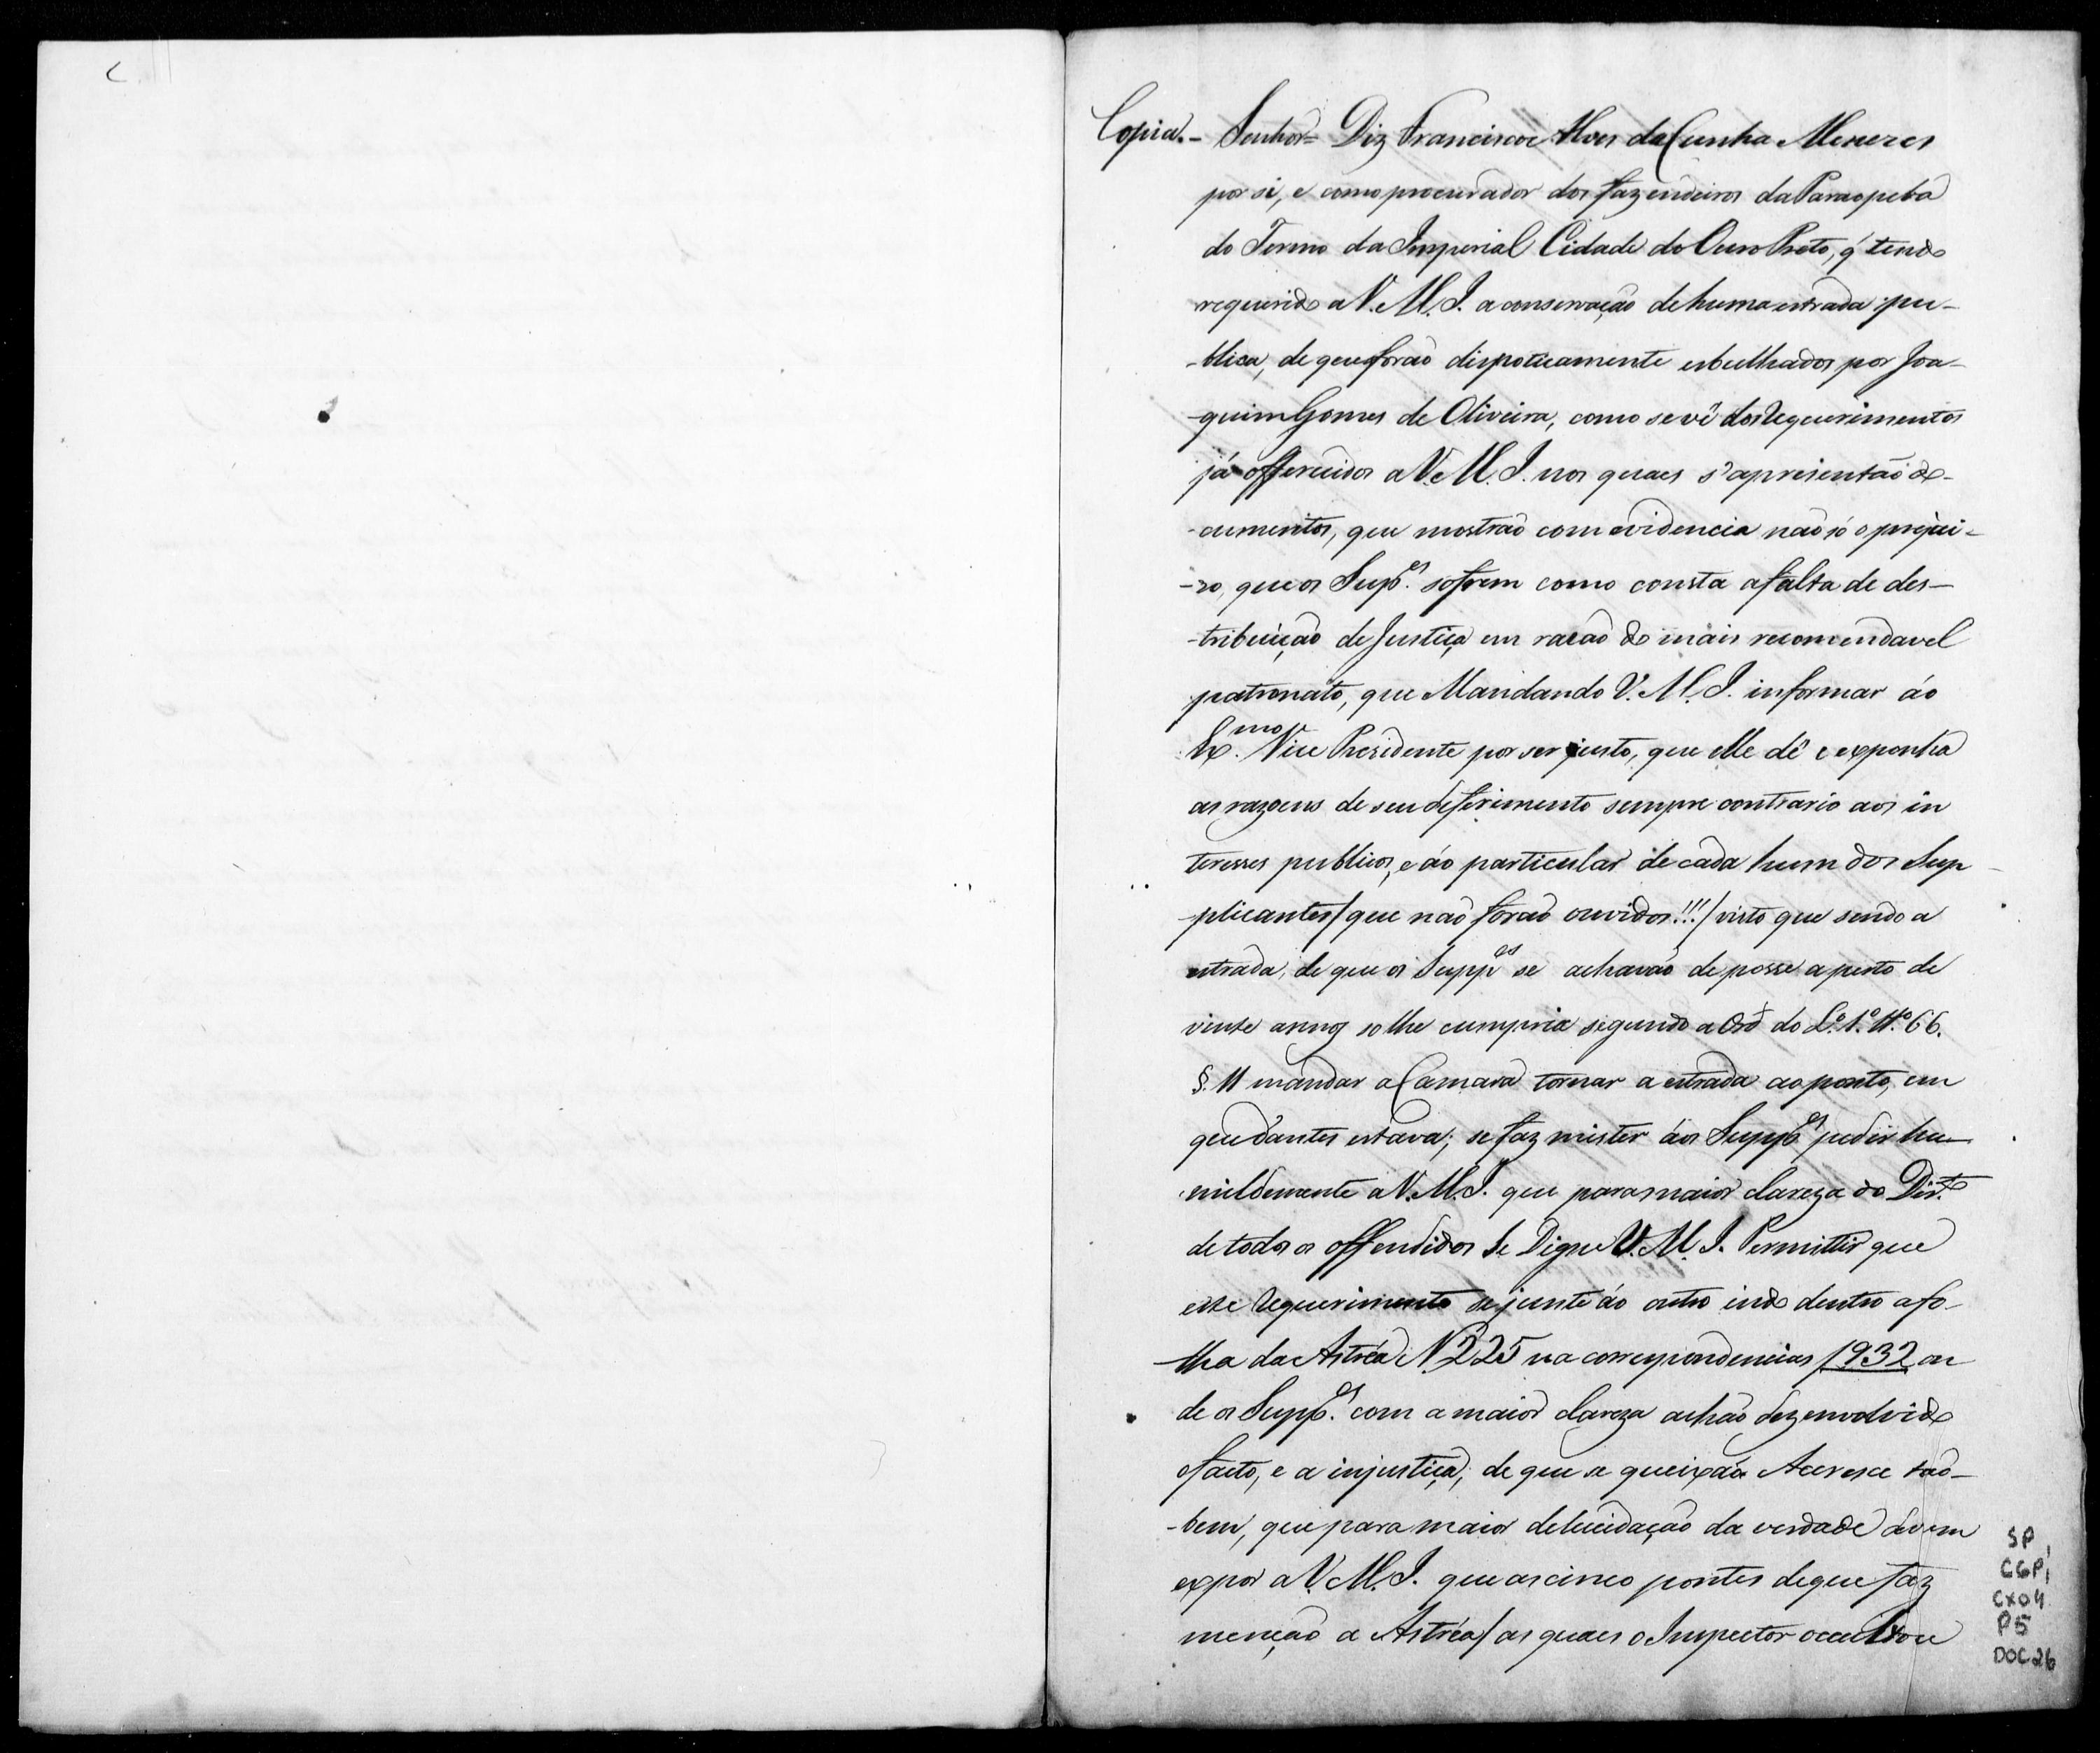 Copia.- Senhor= Diz Francisco Alves da Cunha Menezes
por si, e como procurador dos fazendeiros da Paraopeba
do Termo da Imperial Cidade do Ouro Preto, q' tendo
requerido a V. M. I. a conservação de huma estrada pu-
-blica, de que forão dispoticamente esbulhados por Joa-
-quim Gomes de Oliveira, como se vê dos Requerimentos
já offerecidos a V. M. I. nos quaes s'apresentão do-
-cumentos, que mostrão com evidencia não só o prejui-
-zo, que os Sup.es sofrem como consta a falta de des-
-tribuição de Justiça em razão do mais recomendavel
patronato, que Mandando V. M. I. informar áo
Ex.mo Vice Prezidente por ser justo, que elle dê e exponha
as razoens de seu deferimento sempre contrario aos in
teresses publicos, e áo particular de cada hum dos Sup
-plicantes/que não forão ouvidos!!!/visto que sendo a
estrada, de que os Supp.es se achavão de posse a perto de
vinte annos so lhe cumpria segundo a Ord do L.º 1.º tt.º 66.
§. 11 mandar a Camara tornar a estrada ao ponto, em
que d'antes estava; se faz mister áos Supp.es pedir hu
mildemente a V. M. I. que para maior clareza do Dir.to
de todos os offendidos Se Digne V. M. I. Permittir que
este Requerimento se junte áo outro indo dentro a fo-
lha da Astréa N. 225 na correspondencias /932 on
de os Supp.es com a maior clareza achão dezenvolvido
o facto, e a injustiça, de que se queixão. Acresce tão-
-bem, que para maior delucidação da verdade devem
expor a V. M. I. que as cinco pontes de que faz
menção a Astréa/as quaes o Inspector occultou
SP
CGP1
CX04
P5
DOC26